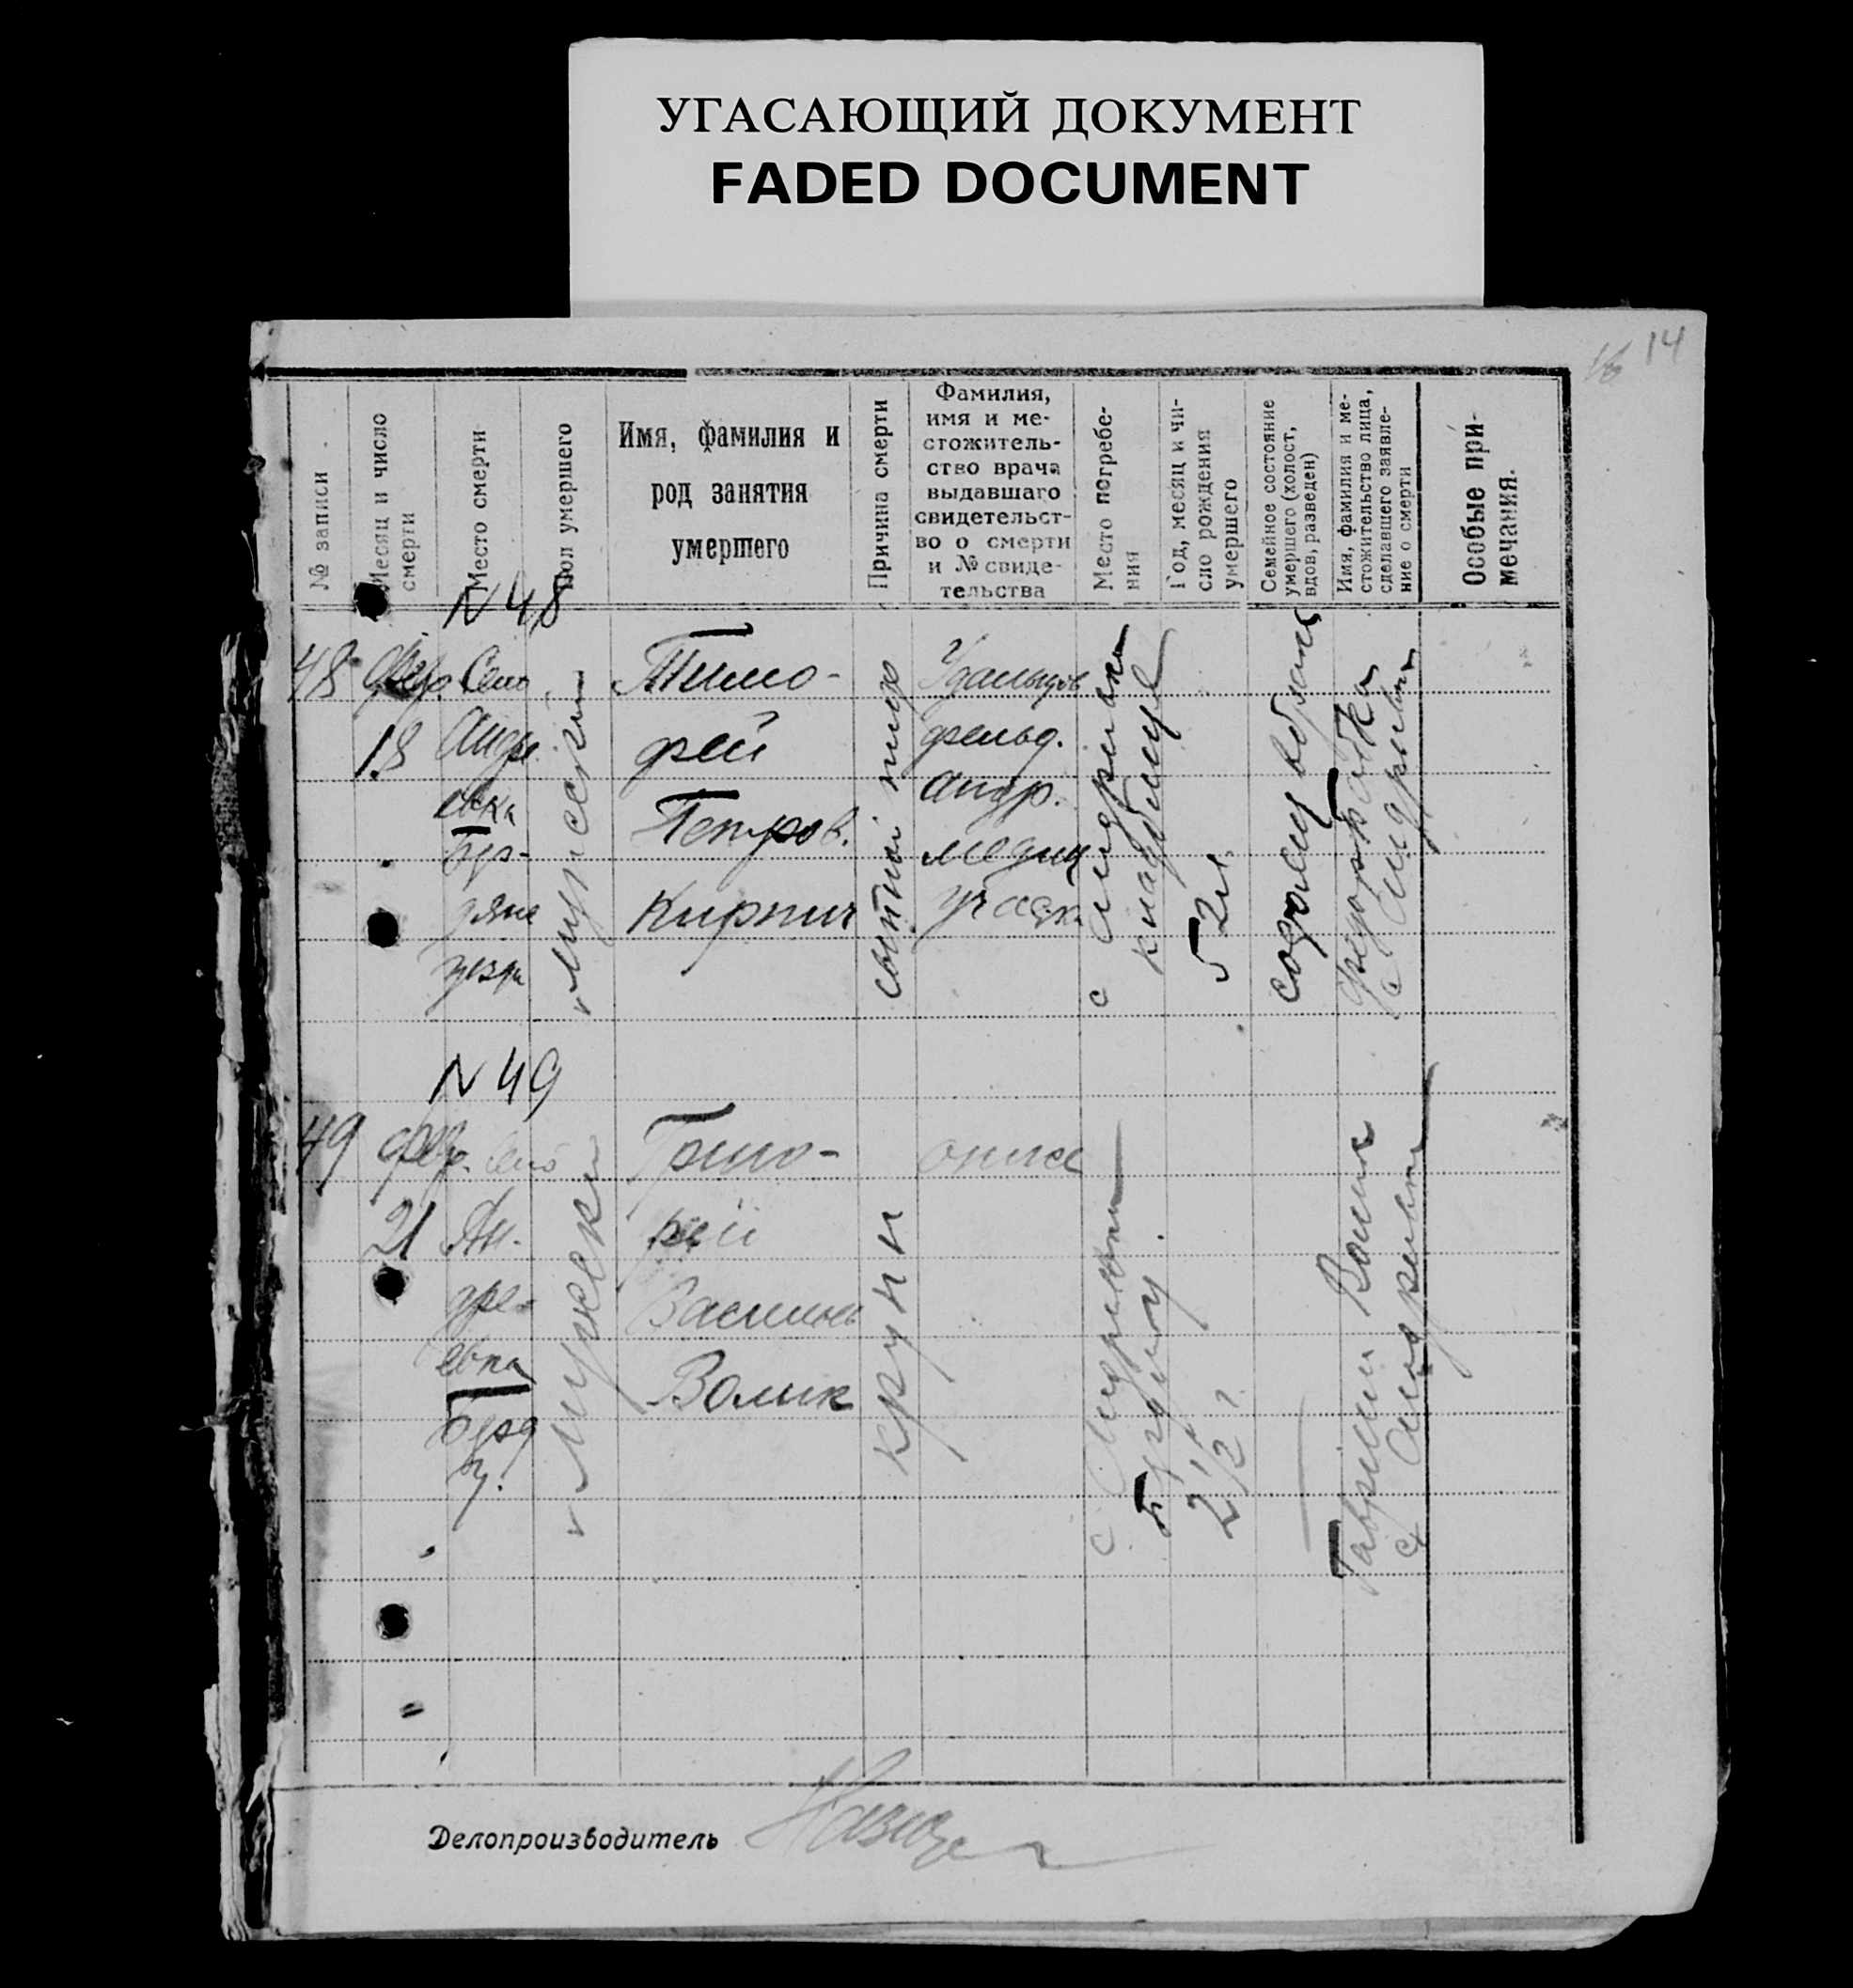 УГАСАЮЩИЙ ДОКУМЕНТ
FADED DOCUMENT
14
№ записи
Месяц и число
смерти
Место смерти
Пол умершего
Имя, фамилия и
род занятия
умершего
Причина смерти
Фамилия,
имя и ме-
стожитель-
ство врача
выдавшаго
свидетельст-
во о смерти
и № свиде-
тельства
Место погребе-
ния
Год, месяц и чи-
сло рождения
умершего
Семейное состояние
умершего (холост,
вдов, разведен)
Имя, фамилия и ме-
стожительство лица,
сделавшего заявле-
ние о смерти
Особые при-
мечания.
N 48
48
Февр.
18
Село
Андре
евка
Бер-
дян
уезда
мужеский
Тимо-
фей
Петров.
Кирпич
сыпной тиф
фельд.
Андр.
медиц
участк.
с Андреевки
кладбище
52 л.
Федор
с Андреевки
N 49
49
Февр.
21
Село
Ан-
дре-
евка
Берд
у.
мужески
Григо-
рий
Васильев
Волик
круп
он же
с Андреевки
2 1/2 г
Гаврии Волик
с Андреевки
Делопроизводитель